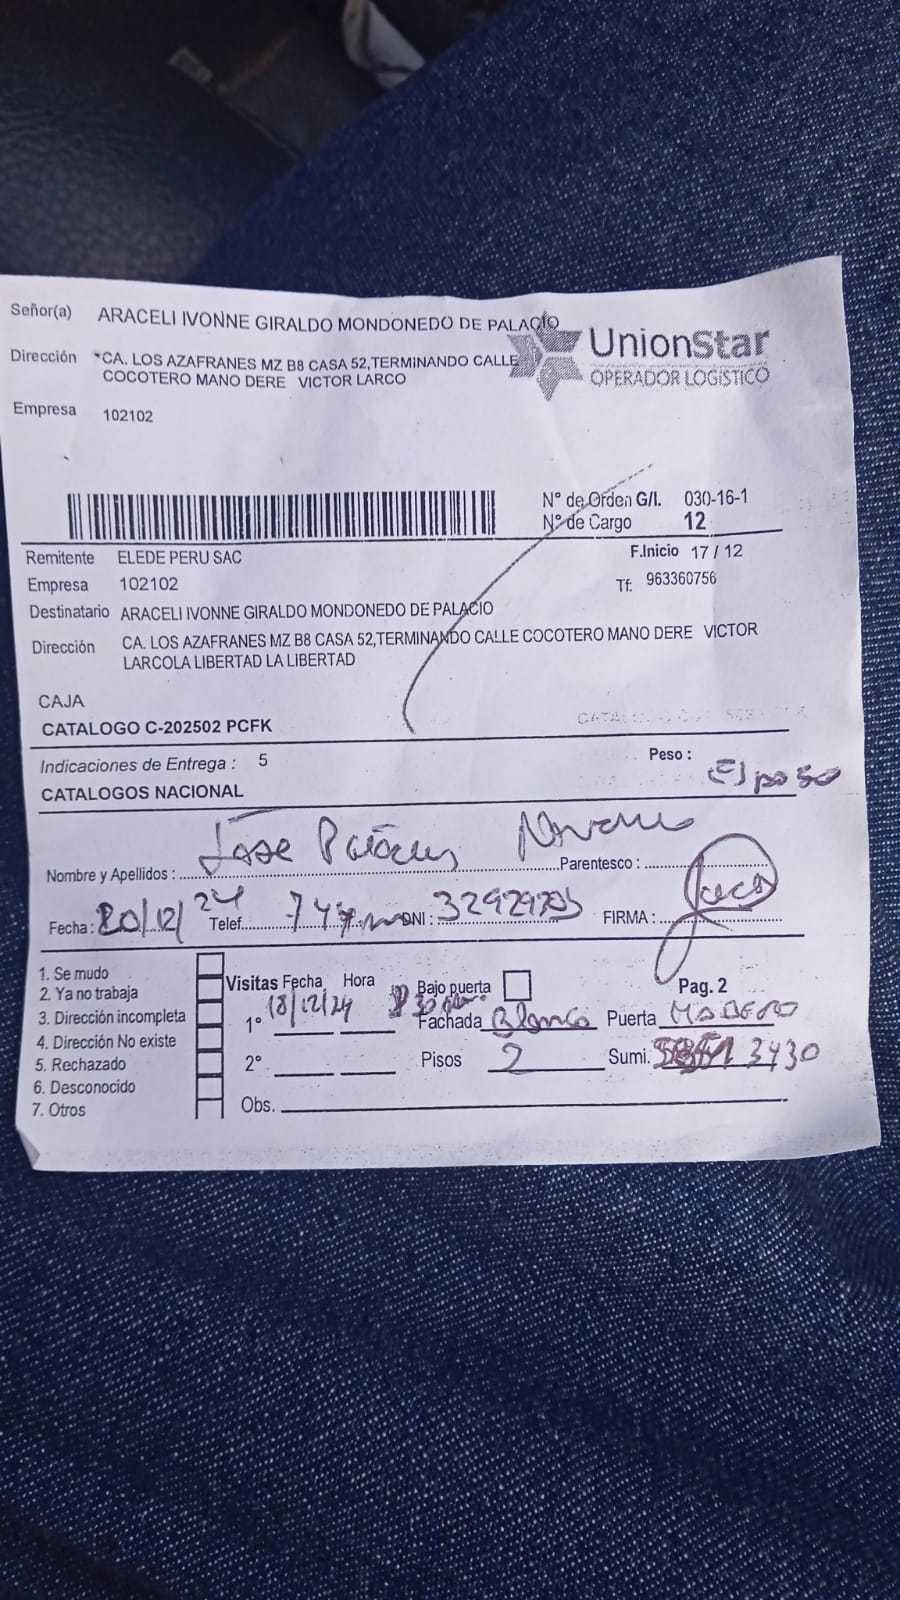 Señor(a) ARACELI IVONNE GIRALDO MONDONEDO DE PALACIO
UnionStar
OPERADOR LOGÍSTICO
Dirección *CA. LOS AZAFRANES MZ B8 CASA 52,TERMINANDO CALLE
COCOTERO MANO DERE VICTOR LARCO
Empresa 102102
N° de Orden G/I. 030-16-1
N° de Cargo 12
Remitente ELEDE PERU SAC F.Inicio 17 / 12
Empresa 102102 Tf: 963360756
Destinatario ARACELI IVONNE GIRALDO MONDONEDO DE PALACIO
Dirección CA. LOS AZAFRANES MZ B8 CASA 52,TERMINANDO CALLE COCOTERO MANO DERE VICTOR
LARCOLA LIBERTAD LA LIBERTAD
CAJA
CATALOGO C-202502 PCFK
Indicaciones de Entrega : 5 Peso :
CATALOGOS NACIONAL Esposo
Nombre y Apellidos : Jose Parentesco :
Fecha : 20/12/24 Telef. DNI : FIRMA :
1. Se mudo
2. Ya no trabaja
3. Dirección incompleta
4. Dirección No existe
5. Rechazado
6. Desconocido
7. Otros
Visitas Fecha Hora Bajo puerta Pag. 2
1° 18/12/24 Fachada Blanco Puerta MADERO
2° Pisos 2 Sumi. 3430
Obs.